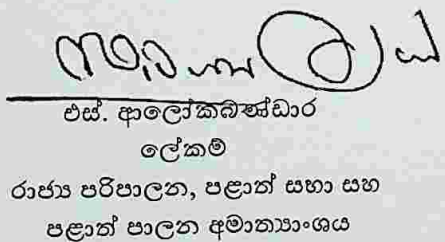 එස්. ආලෝකබණ්ඩාර
ලේකම්
රාජ්‍ය පරිපාලන, පළාත් සභා සහ
පළාත් පාලන අමාත්‍යාංශය